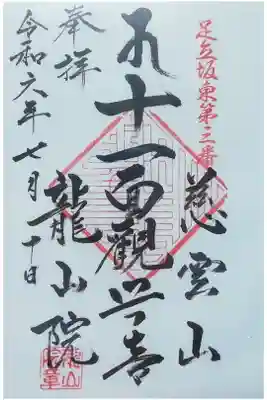 足立坂東第三番
慈雲山
十一面觀世音
龍山院
奉拝
令和六年七月十日